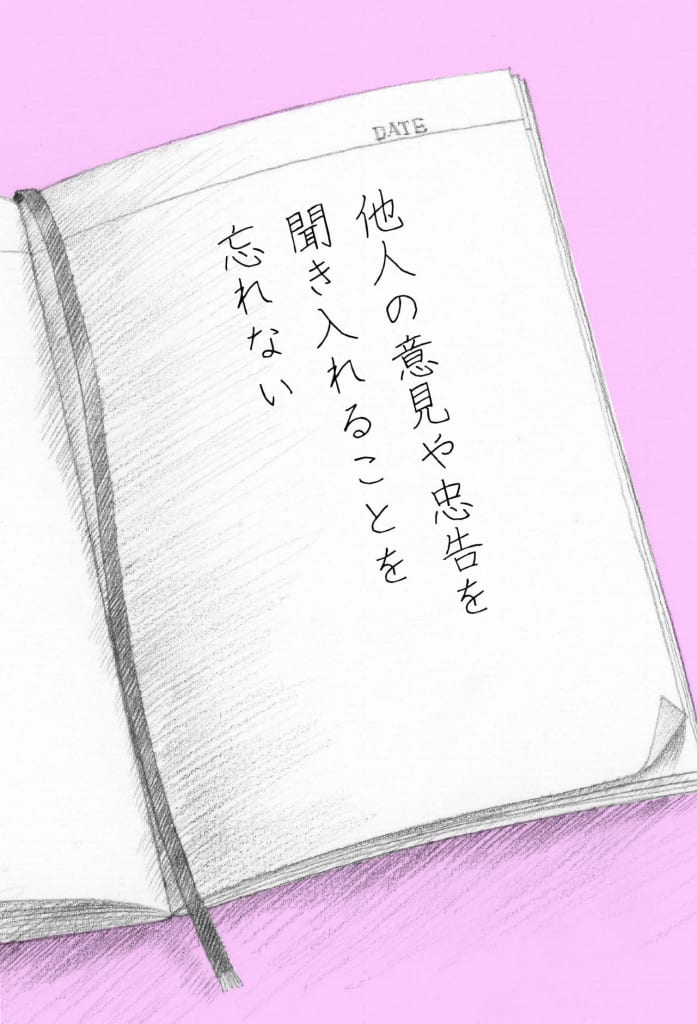 DATE
他人の意見や忠告を
聞き入れることを
忘れない